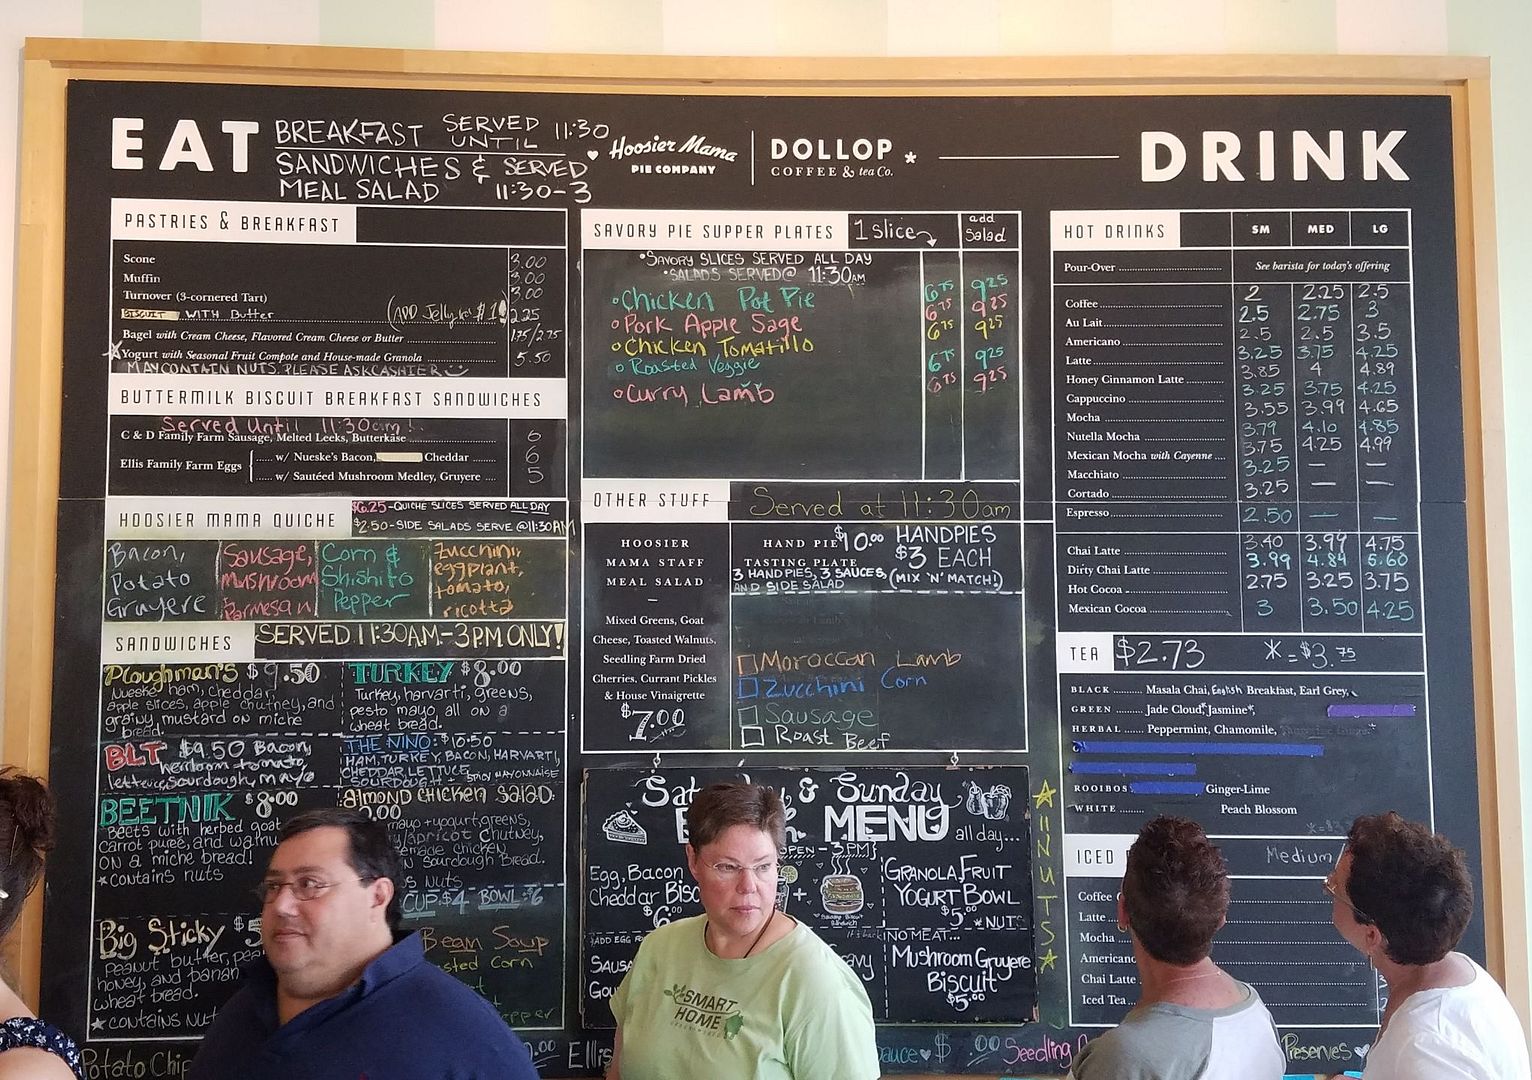 EAT
BREAKFAST SERVED UNTIL 11:30
SANDWICHES & MEAL SALAD SERVED 11:30-3
Hoosier Mama
PIE COMPANY
DOLLOP
COFFEE & tea Co.
DRINK
PASTRIES & BREAKFAST
Scone 3.00
Muffin 3.00
Turnover (3-cornered Tart) 3.00
BISCUIT WITH Butter (ADD Jelly for $1!) 2.25
Bagel with Cream Cheese, Flavored Cream Cheese or Butter 1.75/2.75
Yogurt with Seasonal Fruit Compote and House-made Granola 5.50
MAY CONTAIN NUTS. PLEASE ASK CASHIER
BUTTERMILK BISCUIT BREAKFAST SANDWICHES
Served Until 11:30am!
C & D Family Farm Sausage, Melted Leeks, Butterkäse 6
Ellis Family Farm Eggs
w/ Nueske's Bacon, Cheddar 6
w/ Sautéed Mushroom Medley, Gruyere 5
HOOSIER MAMA QUICHE
$6.25-QUICHE SLICES SERVED ALL DAY
$2.50-SIDE SALADS SERVE @11:30AM
Bacon, Potato Gruyere
Sausage, Mushroom Parmesan
Corn & Shishito Pepper
Zucchini, eggplant, tomato, ricotta
SANDWICHES
SERVED 11:30AM-3PM ONLY!
Ploughman's $9.50
Nueske ham, cheddar,
apple slices, apple chutney, and
grainy mustard on miche
bread.
TURKEY $8.00
Turkey, havarti, greens,
pesto mayo, all on a
wheat bread.
BLT $9.50 Bacon,
heirloom tomato,
lettuce, sourdough, mayo
THE NINO: $10.50
HAM, TURKEY, BACON, HARVARTI,
CHEDDAR, LETTUCE,
SOURDOUGH + SPICY MAYONNAISE
BEETNIK $8.00
Beets with herbed goat
carrot puree, and walnu
on a miche bread!
*contains nuts
almond chicken salad:
mayo+yogurt, greens,
apricot chutney,
chicken
sourdough Bread.
NUTS
CUP-$4 BOWL-$6
Big Sticky $
Peanut butter,
honey, and banan
wheat bread.
*contains nut
Bean Soup
Corn
Potato Chip
SAVORY PIE SUPPER PLATES
1 Slice
add Salad
•SAVORY SLICES SERVED ALL DAY
•SALADS SERVED @ 11:30AM
Chicken Pot Pie 6.75 9.25
Pork Apple Sage 6.75 9.25
Chicken Tomatillo 6.75 9.25
Roasted Veggie 6.75 9.25
Curry Lamb 6.75 9.25
OTHER STUFF
Served at 11:30am
HOOSIER
MAMA STAFF
MEAL SALAD
—
Mixed Greens, Goat
Cheese, Toasted Walnuts,
Seedling Farm Dried
Cherries, Currant Pickles
& House Vinaigrette
$7.00
HAND PIE
TASTING PLATE
$10.00
3 HANDPIES, 3 SAUCES,
AND SIDE SALAD
HANDPIES
$3 EACH
(MIX 'N' MATCH!)
Moroccan Lamb
Zucchini Corn
Sausage
Roast Beef
& Sunday
MENU
all day...
OPEN-3PM
Egg, Bacon
Cheddar Bisc
$6.00
ADD EGG
GRANOLA FRUIT
YOGURT BOWL
$5.00 *NUTS
NO MEAT...
Mushroom Gruyere
Biscuit
$5.00
NUTS
SMART
HOME
Ellis
Sauce
Seedling
Preserves
HOT DRINKS SM MED LG
Pour-Over See barista for today's offering
Coffee 2 2.25 2.5
Au Lait 2.5 2.75 3
Americano 2.5 2.5 3.5
Latte 3.25 3.75 4.25
Honey Cinnamon Latte 3.85 4 4.89
Cappuccino 3.25 3.75 4.25
Mocha 3.55 3.99 4.65
Nutella Mocha 3.79 4.10 4.85
Mexican Mocha with Cayenne 3.75 4.25 4.99
Macchiato 3.25 — —
Cortado 3.25 — —
Espresso 2.50 — —
Chai Latte 3.40 3.99 4.75
Dirty Chai Latte 3.99 4.84 5.60
Hot Cocoa 2.75 3.25 3.75
Mexican Cocoa 3 3.50 4.25
TEA $2.73 *=$3.75
BLACK Masala Chai, English Breakfast, Earl Grey,
GREEN Jade Cloud,* Jasmine*,
HERBAL Peppermint, Chamomile,
ROOIBOS Ginger-Lime
WHITE Peach Blossom
ICED
Medium
Coffee
Latte
Mocha
Americano
Chai Latte
Iced Tea